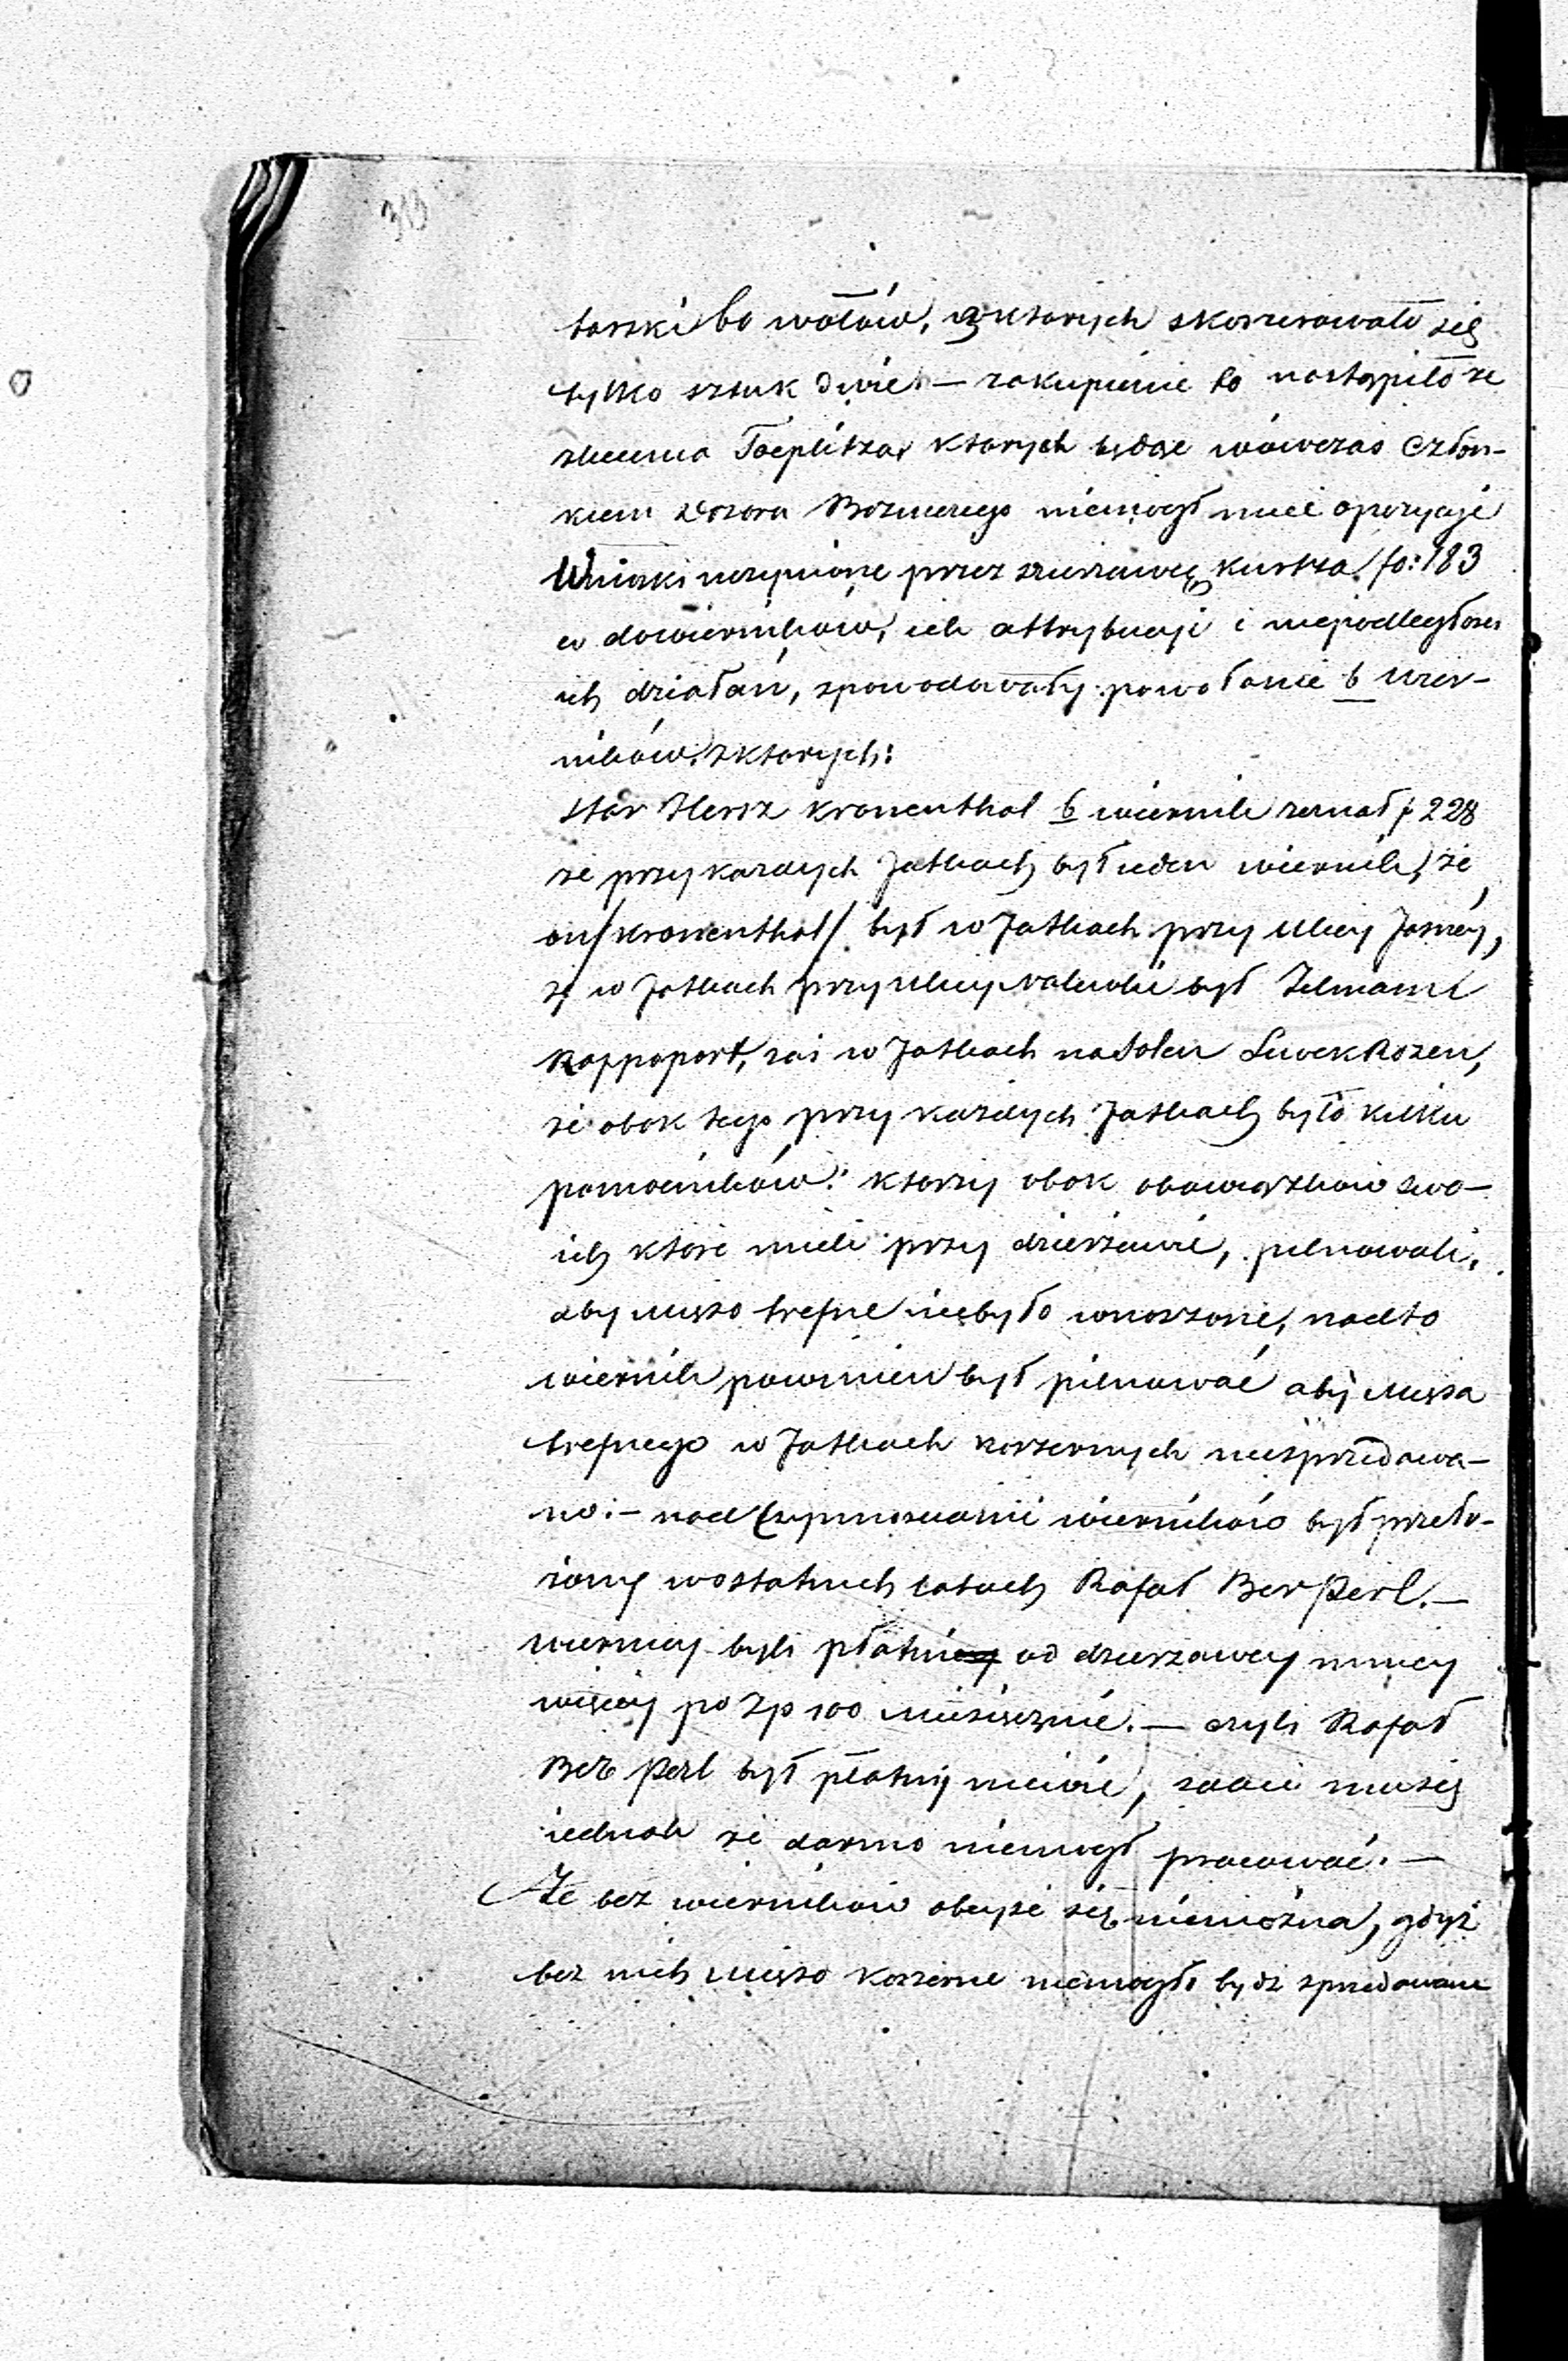 313
tarski 60 wołów, z których skoszerowało się
tylko sztuk dwie – zakupienie to nastąpiło ze
zlecenia Toeplitza, których będąc wówczas Człon-
kiem Dozoru Bożniczego niemógł mieć opozycji
Wnioski uczynione przez dzierżawcę Kurtza fo: 183
co do wierników, ich attrybucyi i niepodległości
ich działań, spowodowały powołanie 6 wier-
ników, z których:
Star Hersz Kronenthal 6 wiernik zeznał f 228
że przy każdych Jatkach był ieden wiernik, że
on /Kronenthal/ był w Jatkach przy Ulicy Jasnéj,
że w Jatkach przy Ulicy był Zelman
Rappoport, zaś w Jatkach na Solcu Lewek Rozen,
że obok tego przy każdych Jatkach było kilku
pomocników: którzy obok obowiązków swo-
ich które mieli przy dzierżawie, pilnowali,
aby mięso trefne niebyło wnoszone, nadto
wiernik powinien był pilnować aby mięsa
trefnego w Jatkach koszernych niesprzedawa-
no: – nad czynnościami wierników był przeło-
żony w ostatnich latach Rafał Ber Perl. –
wiernicy byli płatni od dzierżawcy mniéj
więcéj po Zp 100 miesięcznie. – czyli Rafał
Ber Perl był płatny niewie, zdaie mu się
iednak że darmo niemógł pracować. –
Że bez wierników obejść się niemożna, gdyż
bez nich mięso koszerne niemogło bydź sprzedawane